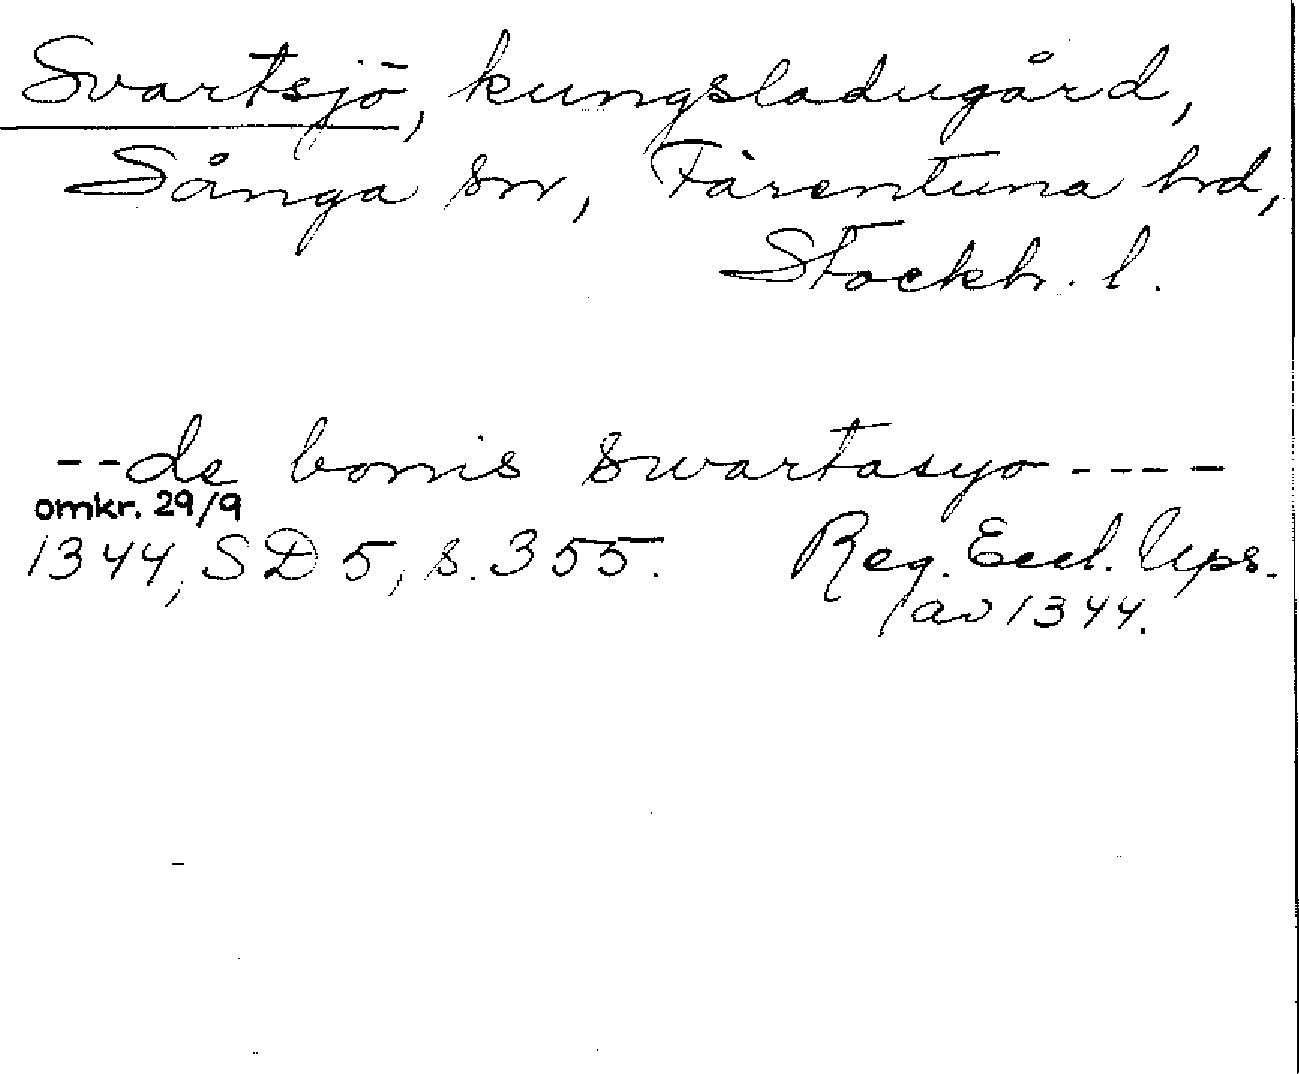 Svartsjö, kungsladugård,
Sånga sn, Färentuna hd,
Stockh. l.
--de bonis swartasyo----
omkr. 29/9
1344, SD 5, s. 355. Reg. Eccl. Ups.
av 1344.